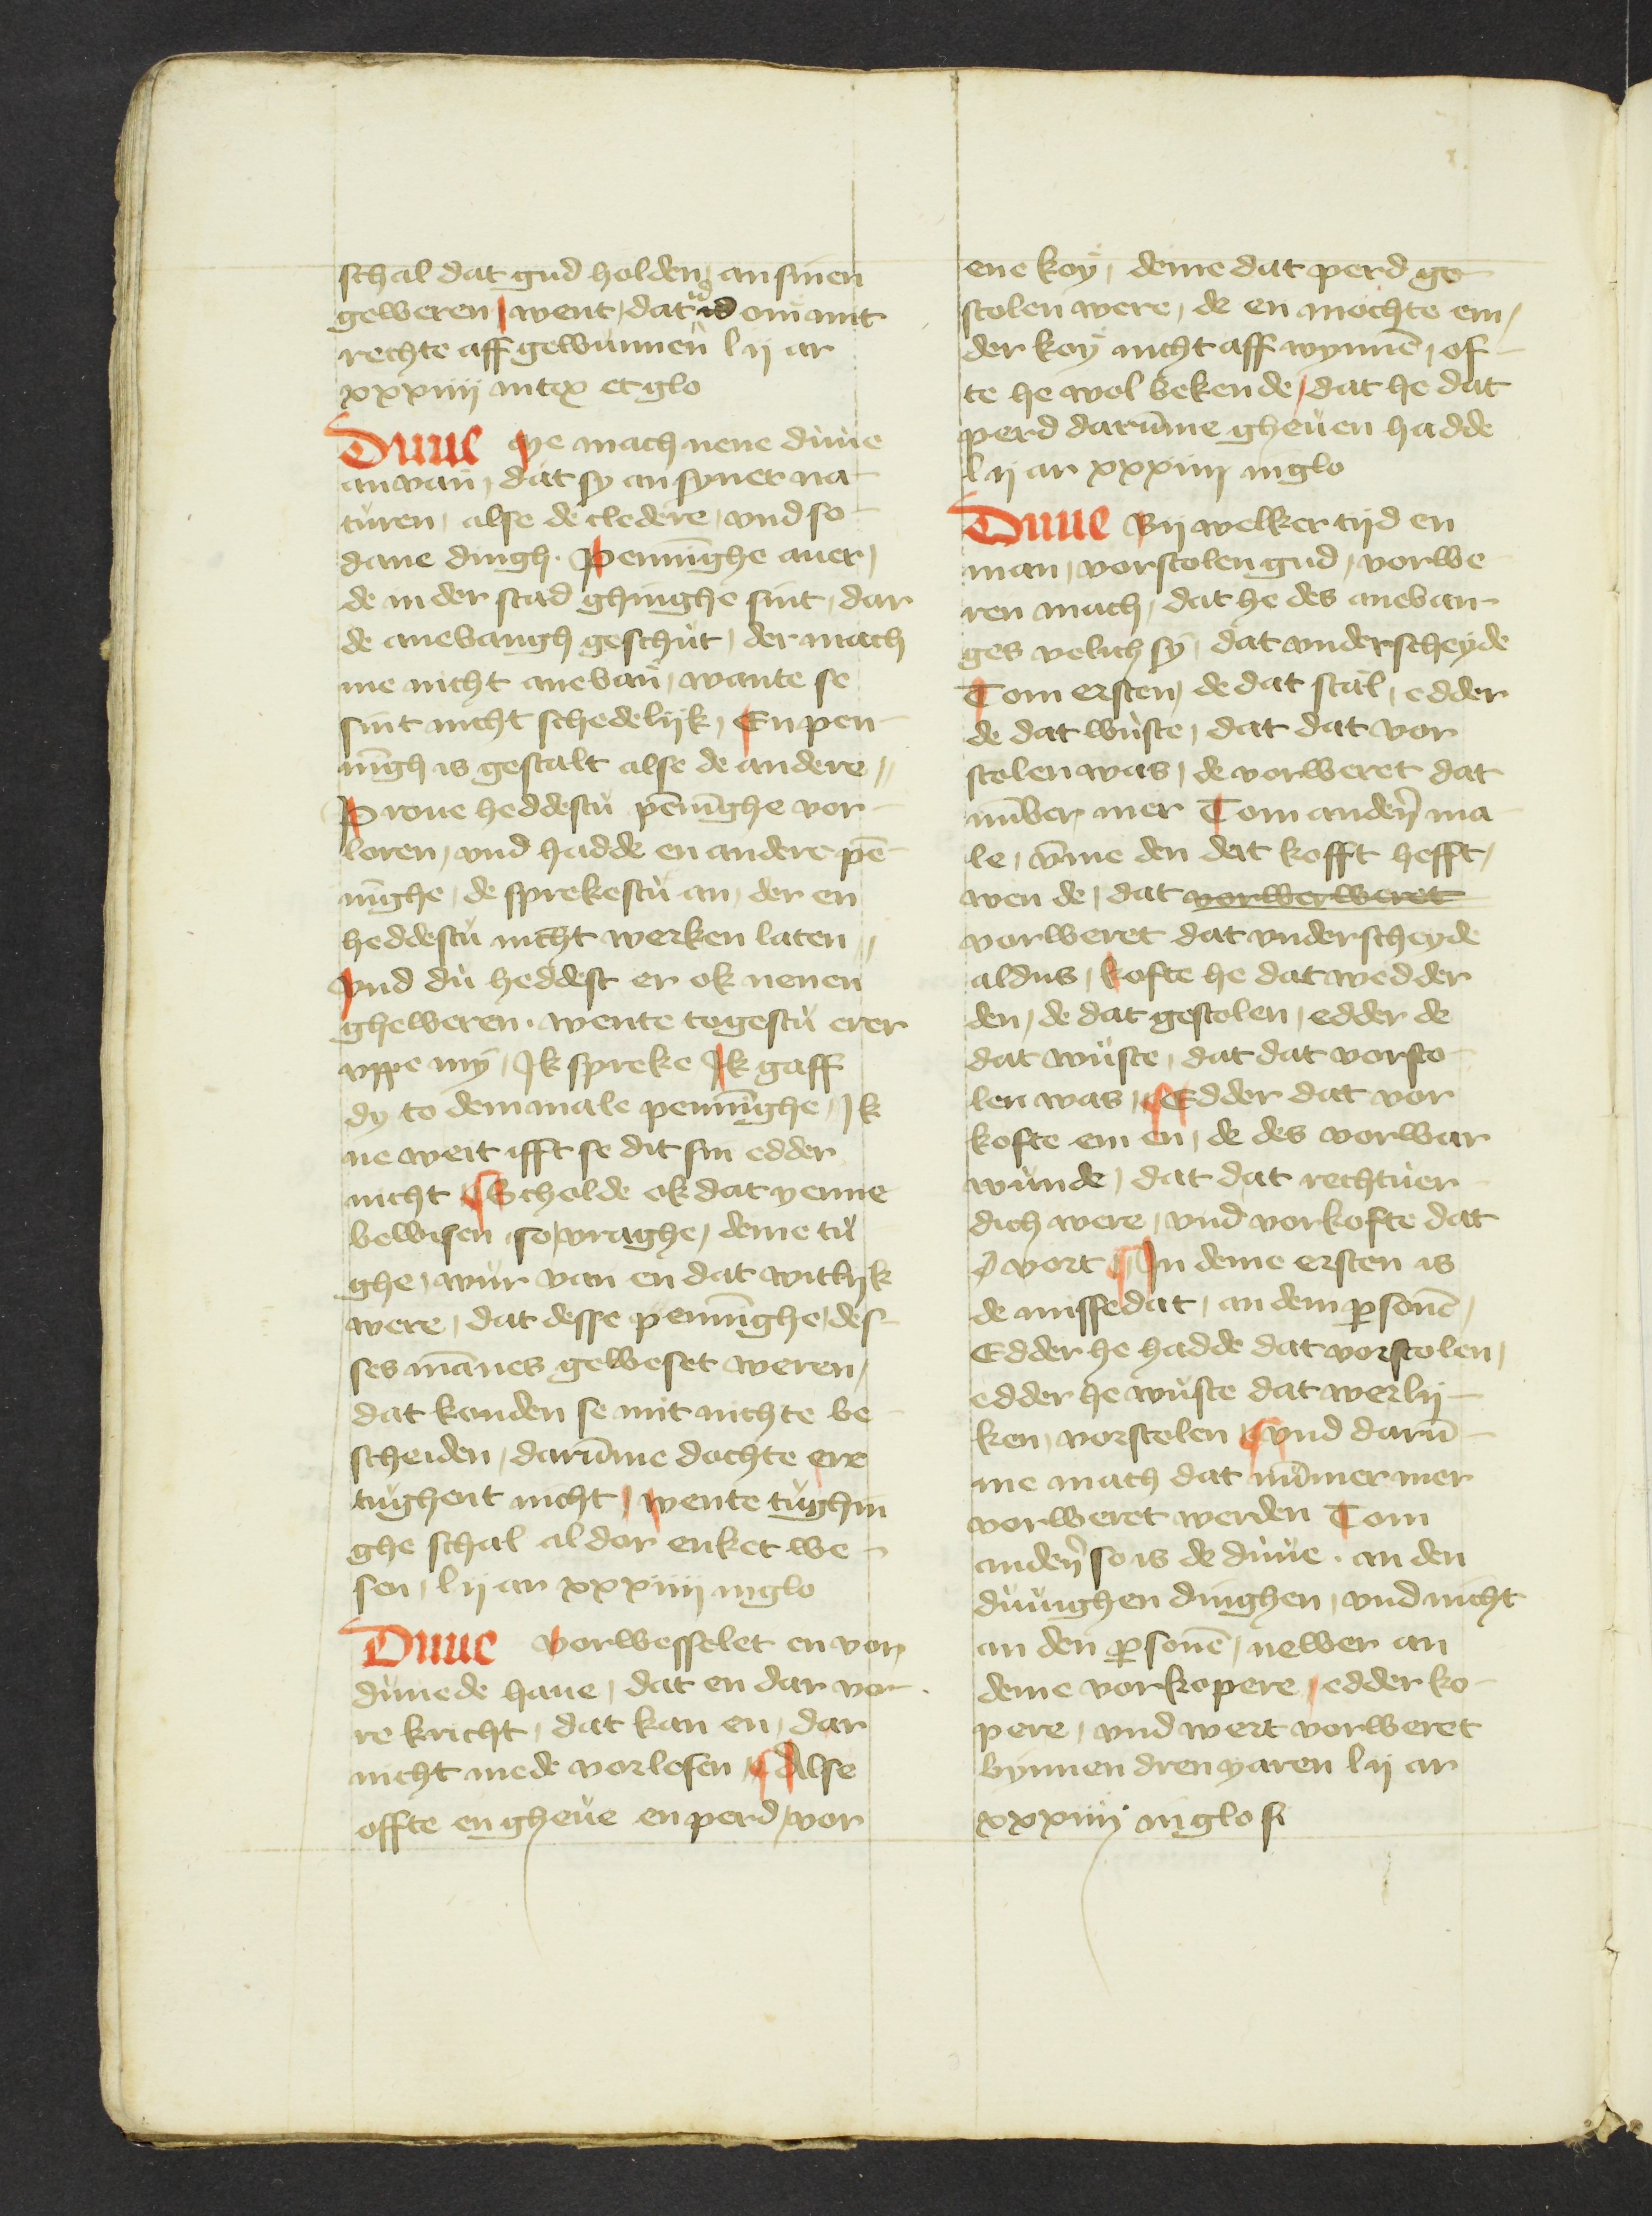 schal dat gud holden, an sinen
geweren, went, dat id om̄ mit
rechte aff gewunnen lij ar
xxxiiij in tex et glo
Duue Me mach nene dùue
anvan, dat sy an syner na-
tùren, alse de cledere, vnd so-
dane dingh. Penni̅ghe auer,
de in der stad ghinghe sint, dar
de anevangh geschùt, der mach
me nicht anevan, wante se
sint nicht schedelijk, En pen-
ni̅gh is gestalt alse de andere,,
Proue heddestù pe̅ni̅ghe vor-
loren, vnd hadde en andere pe̅-
ni̅ghe, de sprekestù an, der en
heddestù nicht merken laten,,
vnd dù heddest er ok nenen
gheweren. wente togestù erer
vppe my, Ik spreke Ik gaff
dy to dem male penni̅ghe, Ik
ne weit ifft se dit sin edder
nicht Scholde ok dat yenne
bewisen, so vraghe, deme tù-
ghe, wùr van en dat witlijk
were, dat desse penni̅ghe, des-
ses ma̅nes geweset weren,
dat konden se mit nichte be-
scheiden, daru̅me dochte ere
tùghent nicht, wente tùghin
ghe schal al dor enket we-
sen, lij ar xxxiiij in glo
Duue vorwesselet en vor
dùuede haue, dat en dar vo-
re kricht, dat kan en, dar
nicht mede vorlesen, Alse
offte en gheùe en perd, vor
ene koy, deme dat perd ge-
stolen were, de en mochte em,
der koy nicht aff wynne̅, of-
te he wol bekende, dat he dat
perd daru̅me gheùen hadde
lij ar xxxiiij in glo
Duue Bij welker tijd en
man, vorstolen gud, vorwe-
ren mach, dat he des anevan-
ges velich sy, dat vnderscheyde
Tom ersten, de dat stal, edder
de dat wùste, dat dat vor
stolen was, de vorweret dat
nu̅ber mer Tom ander̅ ma-
le, v̅me den dat kofft hefft,
wen de, dat vorwerweret
vorweret dat vnderscheyde
aldus, kofte he dat wedder
den, de dat gestolen, edder de
dat wùste, dat dat vorsto-
len was, Edder dat vor
kofte em en, de des vorwar
wunde, dat dat rechtùer-
dich were, vnd vorkofte dat
vort In deme ersten is
de missedat, an dem p̲sone̅,
Edder he hadde dat vorstolen,
edder he wùste dat werlij-
ken, vorstolen vnd daru̅-
me mach dat nu̅mer mer
vorweret werden Tom
ander̅ so is de dùùe. an den
dùùighen dinghen, vnd nicht
an den p̲sone̅, newer an
deme vorkopere, edder ko-
pere, vnd wert vorweret
bynnen dren yaren lij ar
xxxiiij in glosi